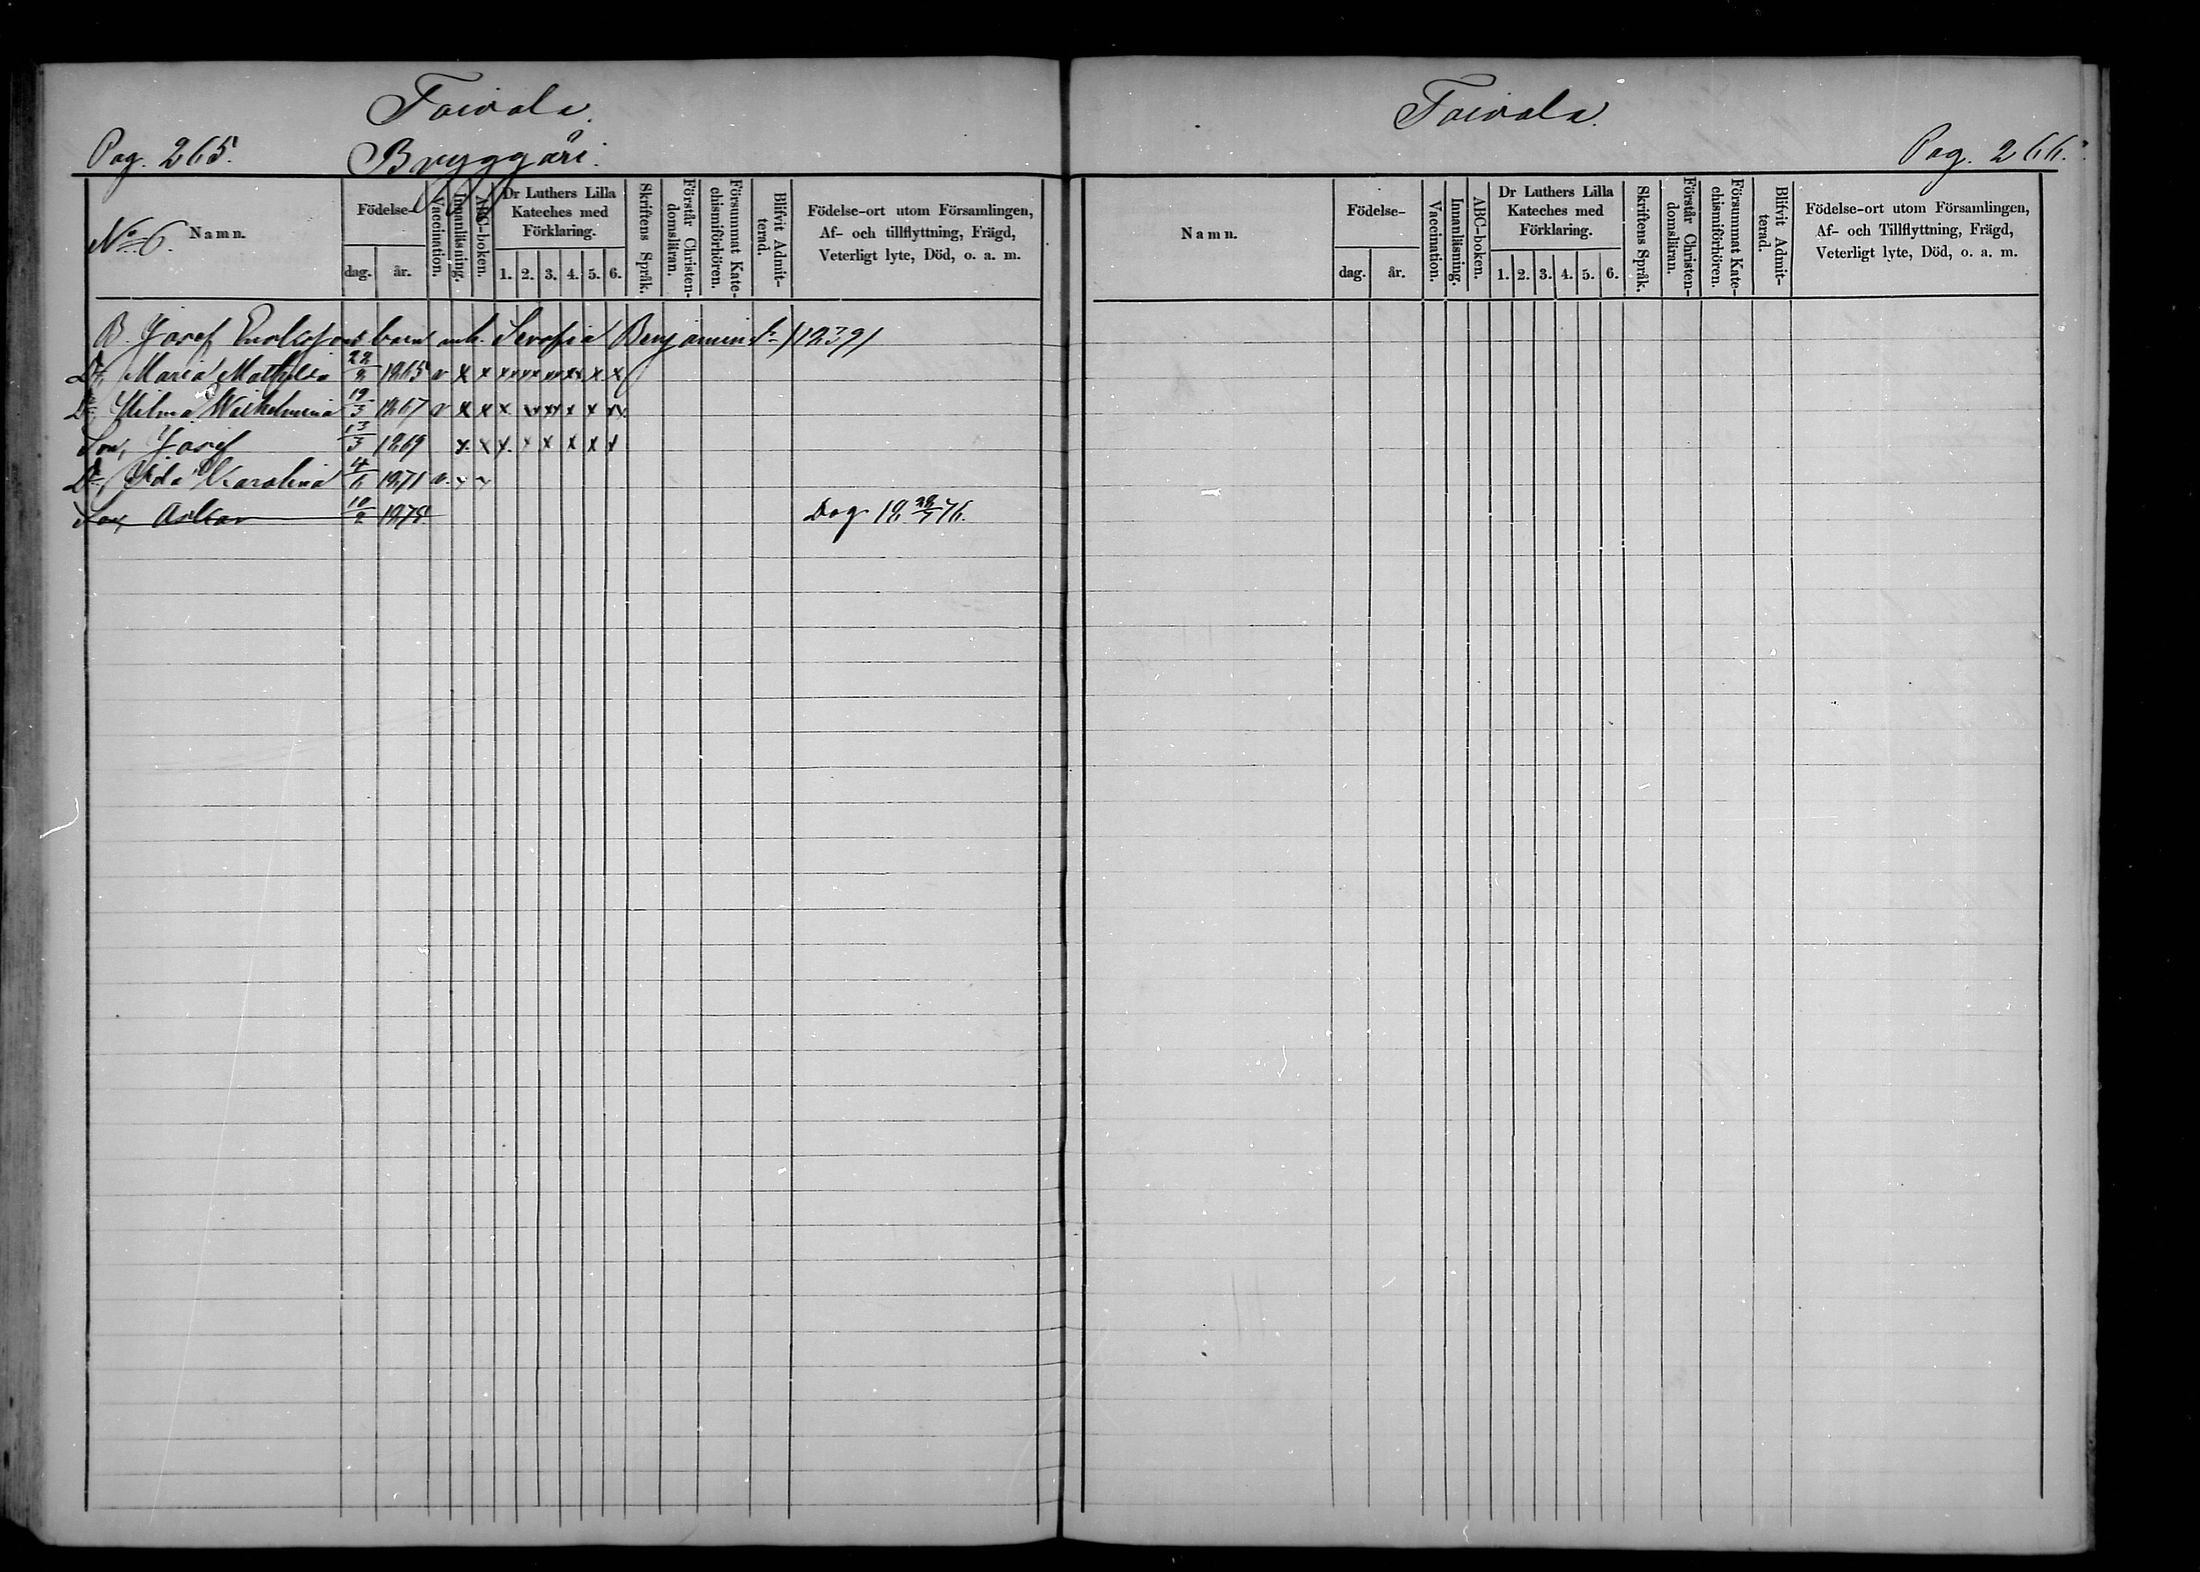 Toivola.
Pag. 265. Bryggäri.
No 6. Namn.
Födelse-
dag. år.
Vaccination.
Innanläsning.
ABC-boken.
Dr Luthers Lilla Kateches med Förklaring.
1. 2. 3. 4. 5. 6.
Skriftens Språk.
Förstår Christendomsläran.
Försummat Katechismiförhören.
Blifvit Admitterad.
Födelse-ort utom Församlingen,
Af- och tillflyttning, Frägd,
Veterligt lyte, Död, o. a. m.
B. Josef barn Serafia Benjamin
Dr, Maria Mathilda 22/2 1865 v x x x xx xx xx x x
Dr, Hilma Wilhelmina 19/3 1867 v x x x xx xx x x xx
Son, Josef 13/3 1869 x x x x x x x x
Dr, Ida Karolina 4/6 1871 v.
Son Oskar 10/2 1875 Dog 18 /7 76.
Toivola.
Pag. 266.
Namn.
Födelse-
dag. år.
Vaccination.
Innanläsning.
ABC-boken.
Dr Luthers Lilla Kateches med Förklaring.
1. 2. 3. 4. 5. 6.
Skriftens Språk.
Förstår Christendomsläran.
Försummat Katechismiförhören.
Blifvit Admitterad.
Födelse-ort utom Församlingen,
Af- och Tillflyttning, Frägd,
Veterligt lyte, Död, o. a. m.